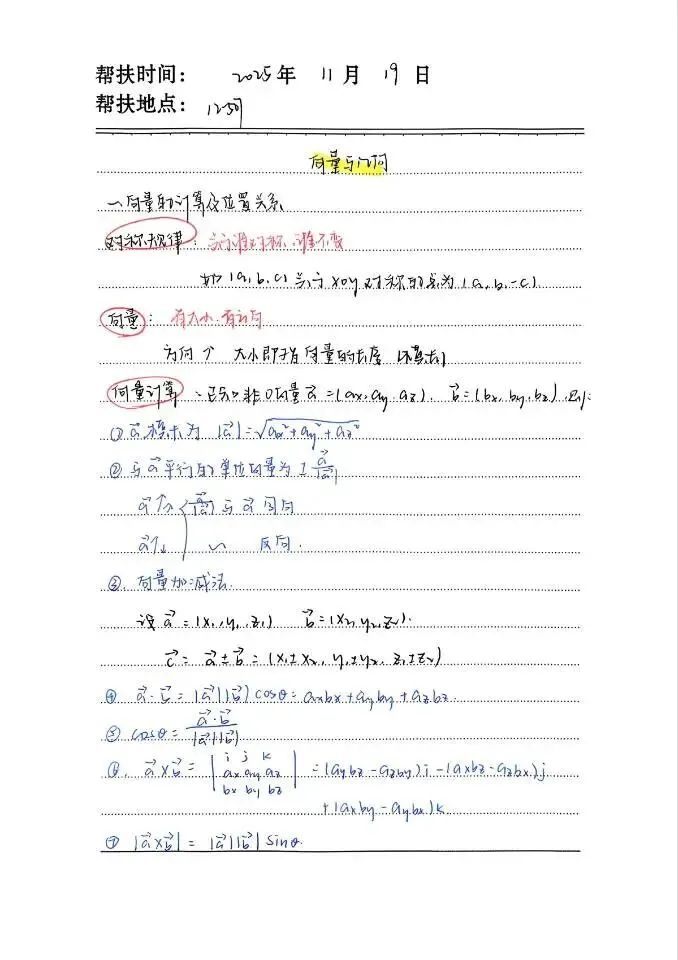 帮扶时间： 2025年 11月 19日
帮扶地点： 12501
向量与几何
一、向量的计算及位置关系
对称规律：关于谁对称，谁不变
如(a,b,c)关于xoy对称的点为(a,b,-c)
向量：有大小，有方向
方向↑ 大小即指向量的长度（模长）
向量计算：已知非0向量a⃗=(ax,ay,az)，b⃗=(bx,by,bz)，则：
① a⃗模长为 |a⃗|=√(ax²+ay²+az²)
② 与a⃗平行的单位向量为±a⃗/|a⃗|
a⃗↑↑ a⃗/|a⃗|与a⃗同向
a⃗↑↓ 〃 反向.
③. 向量加减法.
设a⃗=(x₁,y₁,z₁) b⃗=(x₂,y₂,z₂).
c⃗=a⃗±b⃗=(x₁±x₂,y₁±y₂,z₁±z₂)
④ a⃗·b⃗=|a⃗||b⃗|cosθ=axbx+ayby+azbz.
⑤ cosθ=a⃗·b⃗/|a⃗||b⃗|
⑥. a⃗×b⃗=|i j k
ax ay az
bx by bz|=(aybz-azby)i-(axbz-azbx)j
+(axby-aybx)k
⑦ |a⃗×b⃗|=|a⃗||b⃗|sinθ.